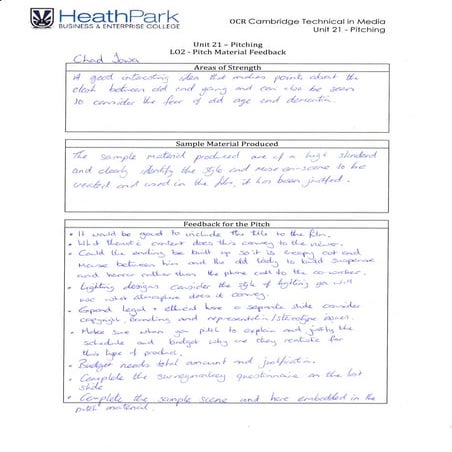 HeathPark
BUSINESS & ENTERPRISE COLLEGE
OCR Cambridge Technical in Media
Unit 21 - Pitching
Unit 21 – Pitching
LO2 - Pitch Material Feedback
Chad Jawa
Areas of Strength
A good interesting idea that makes points about the
clash between old and young and can also be seen
to consider the fear of old age and dementia.
Sample Material Produced
The sample material produced are of a high standard
and clearly identify the style and mise-en-scene to be
created and used in the film, it has been justified.
Feedback for the Pitch
• It would be good to include the title to the film.
• What thematic content does this convey to the viewer.
• Could the ending be built up so it is creepy cat and
mouse between him and the old lady to build suspense
and horror rather than the phone call to the co-worker.
• Lighting designs consider the style of lighting you will
use what atmosphere does it convey.
• Expand legal + ethical have a separate slide consider
copyright branding and representation/stereotype issues.
• Make sure when you pitch to explain and justify the
schedule and budget why are they realistic for
this type of product.
• Budget needs total amount and justification.
• Complete the questionnaire on the last
slide
• Complete the sample scene and have embedded in the
pitch material.